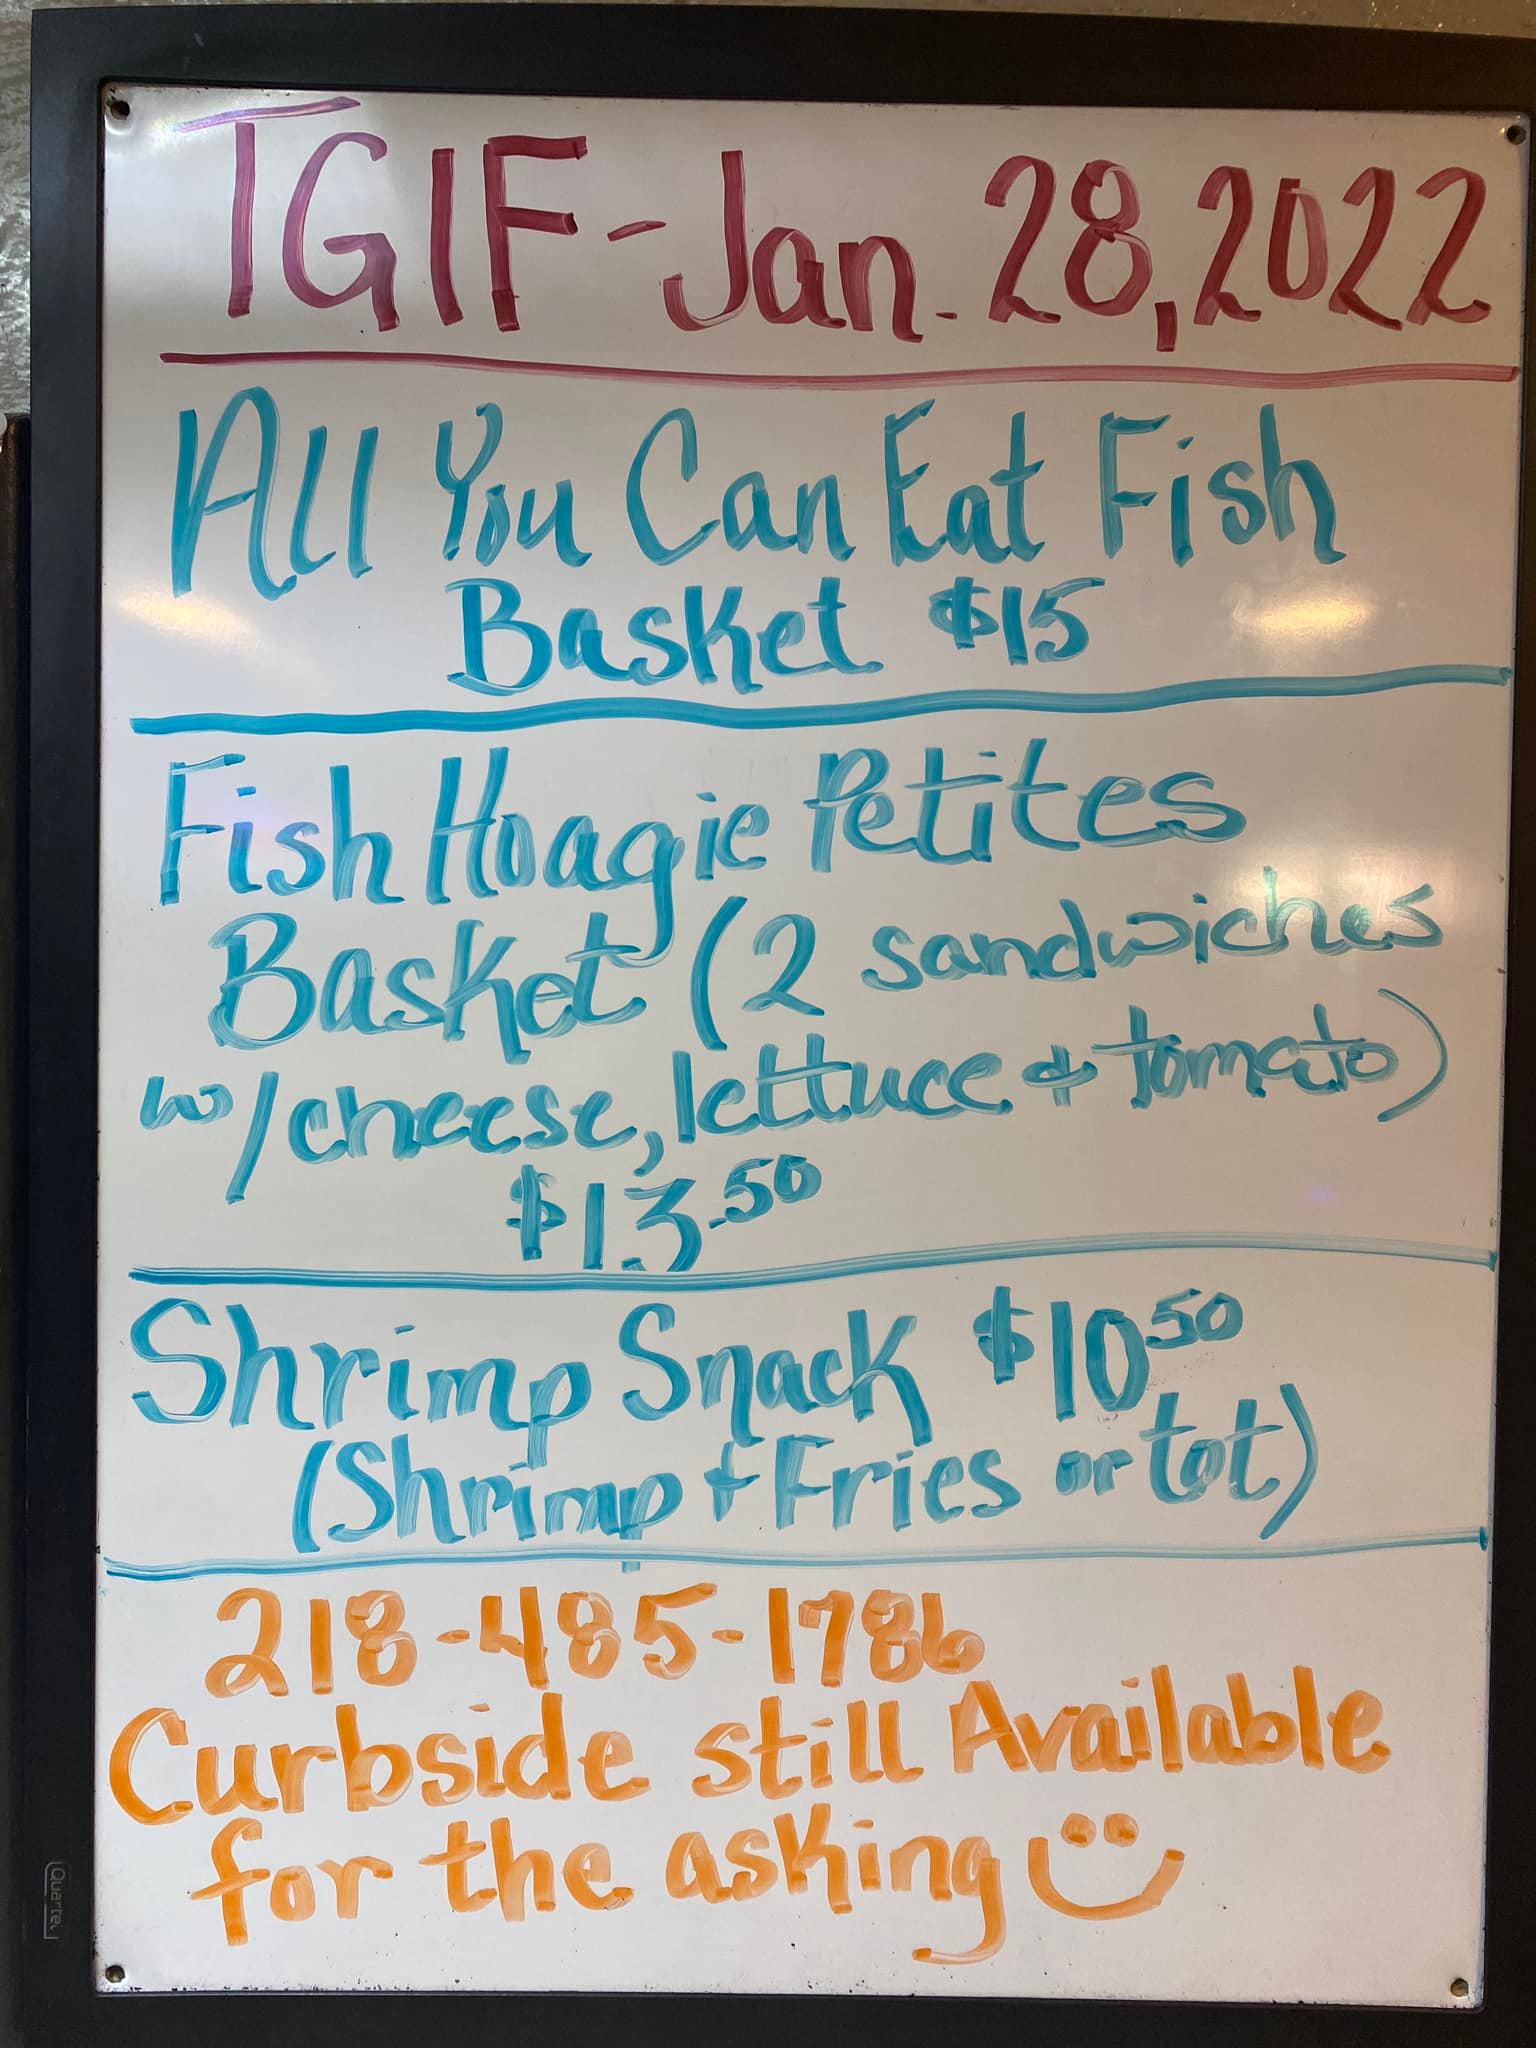 TGIF - Jan. 28, 2022
All You Can Eat Fish
Basket $15
Fish Hoagie Petites
Basket (2 sandwiches
w/cheese, lettuce & tomato)
$13.50
Shrimp Snack $10 50
(Shrimp + Fries or tot)
218-485-1786
Curbside still Available
for the asking
Quartet